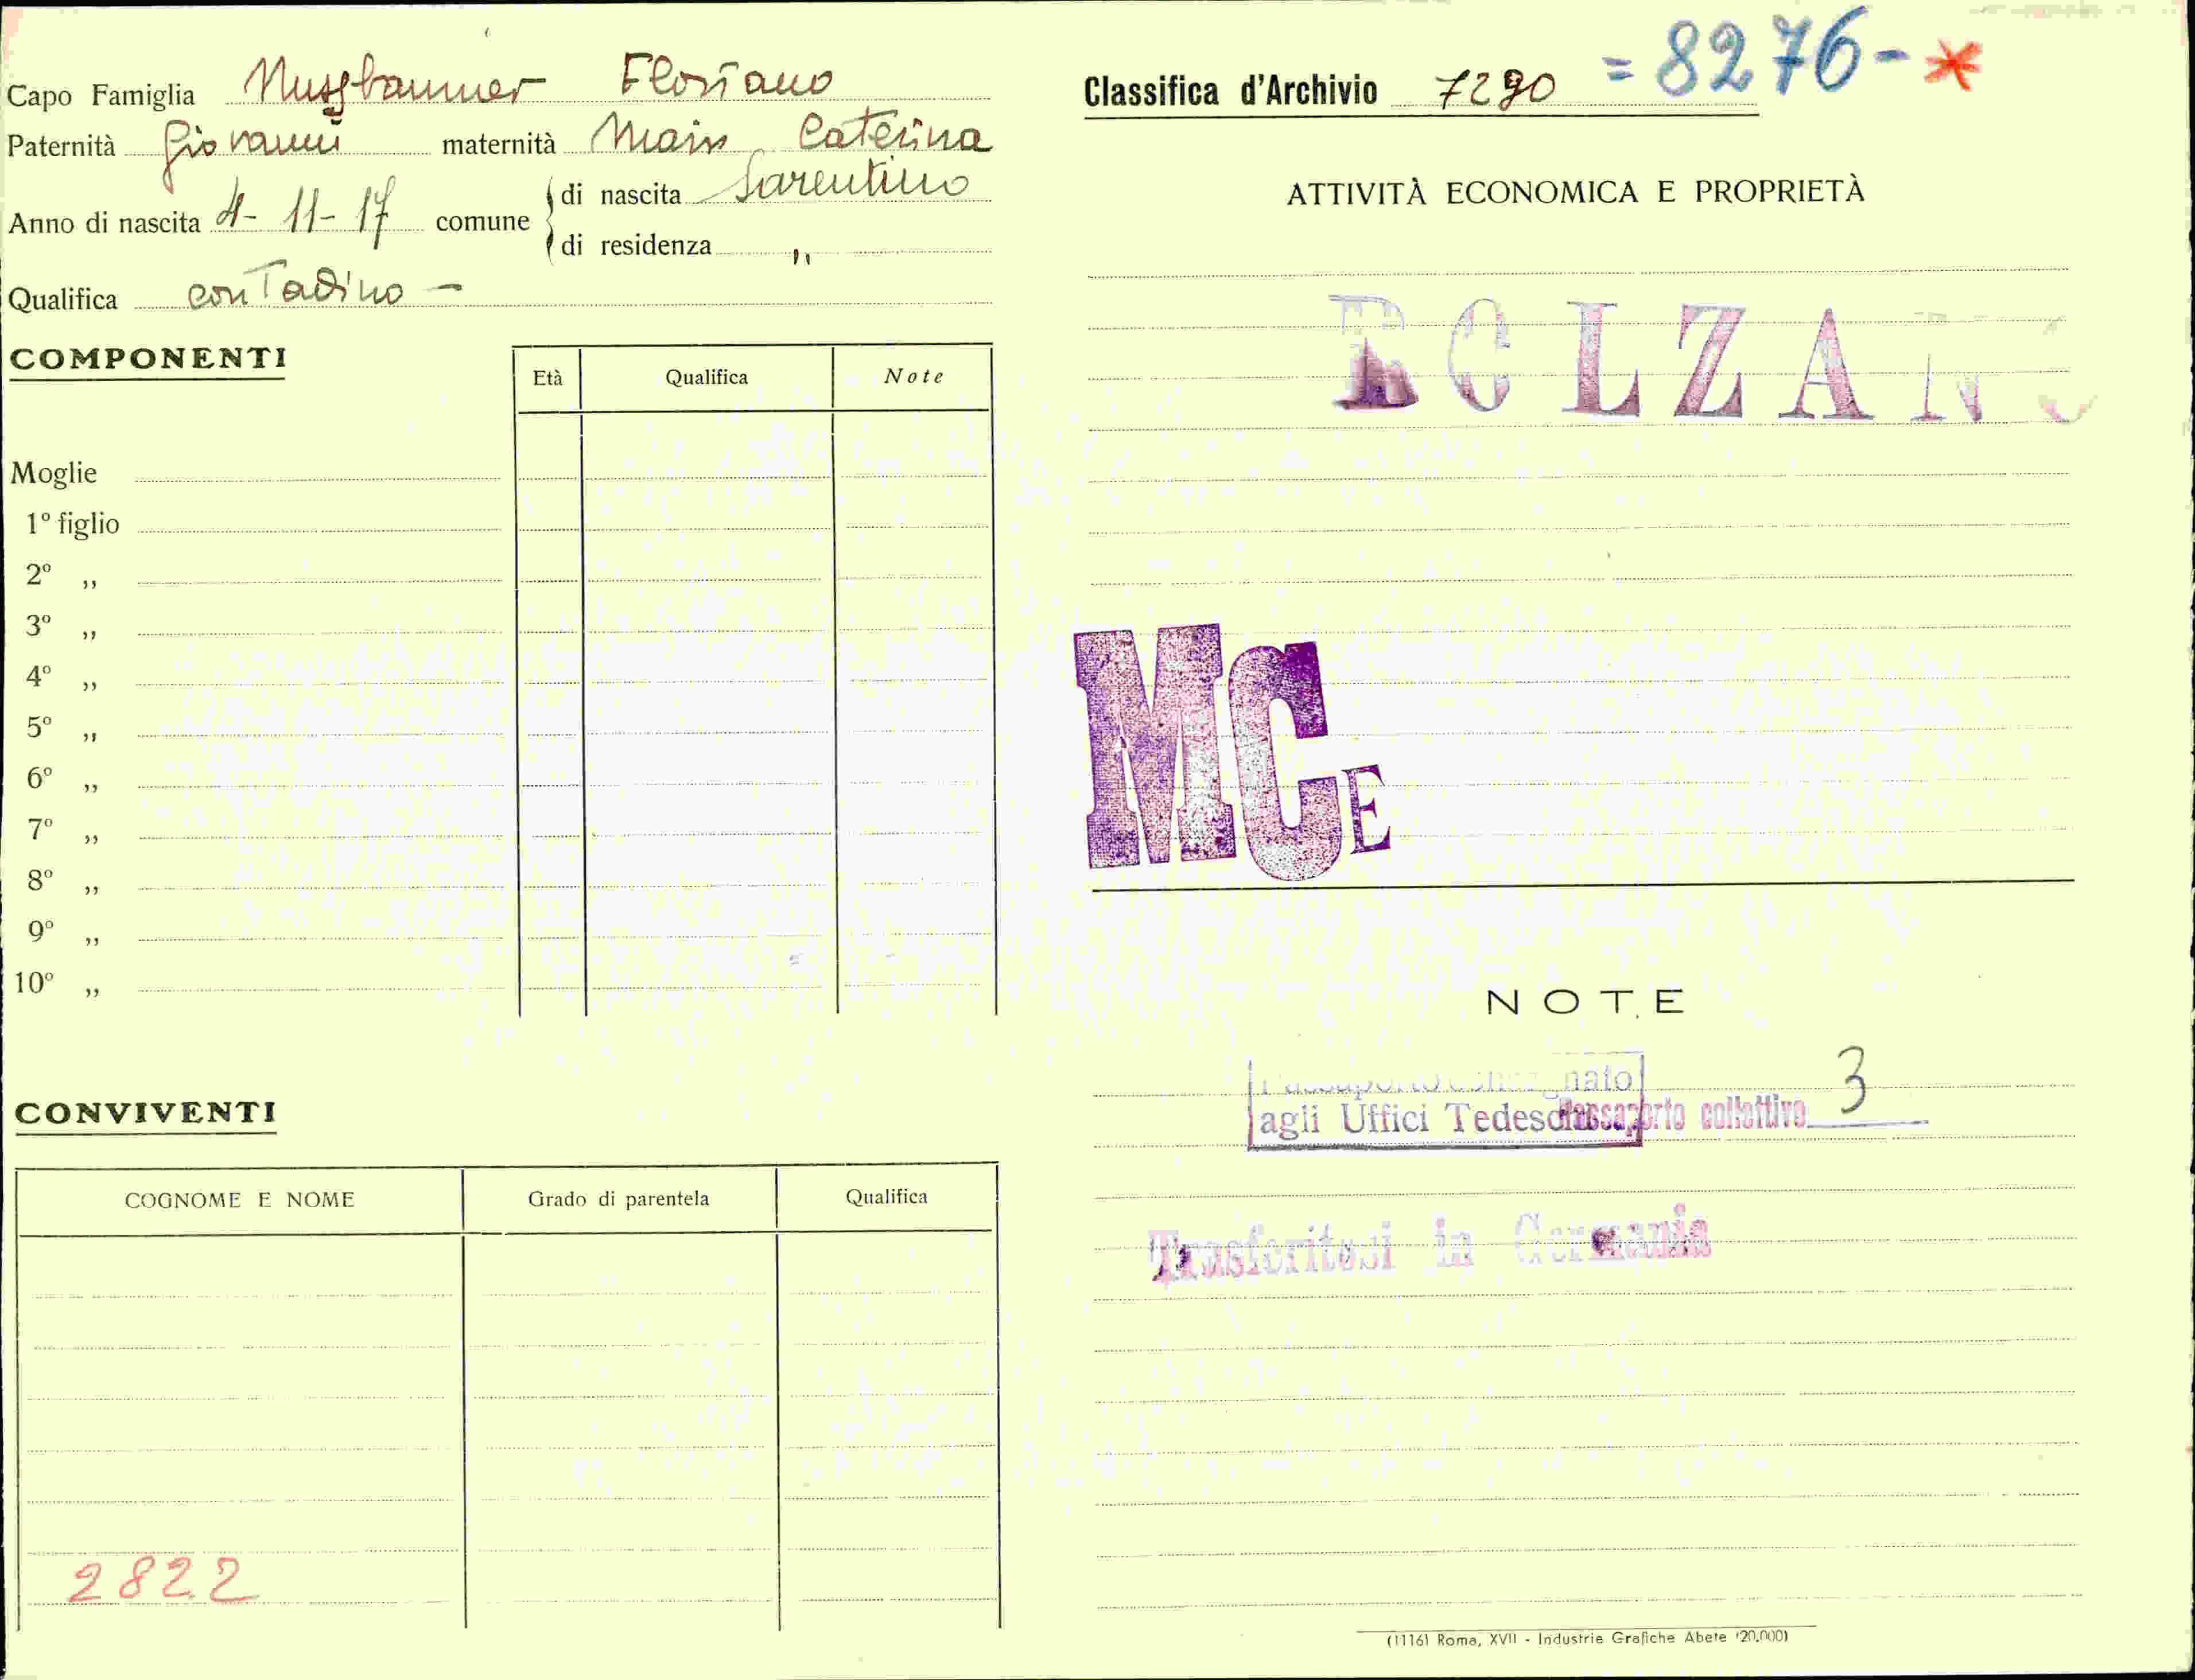 Capo Famiglia Nussbaumer Floriano
Paternità Giovanni maternità Mair Caterina
Anno di nascita 4-11-17 comune di nascita Sarentino
di residenza "
Qualifica contadino -
COMPONENTI
Età Qualifica Note
Moglie
1º figlio
2º ,,
3º ,,
4º ,,
5º ,,
6º ,,
7º ,,
8º ,,
9º ,,
10º ,,
CONVIVENTI
COGNOME E NOME Grado di parentela Qualifica
2822
Classifica d'Archivio 7290 = 8276 - *
ATTIVITÀ ECONOMICA E PROPRIETÀ
BOLZANO
MCE
NOTE
agli Uffici Tedeschi Passaporto collettivo 3
Trasferitosi in Germania
(1116) Roma, XVII - Industrie Grafiche Abete (20.000)